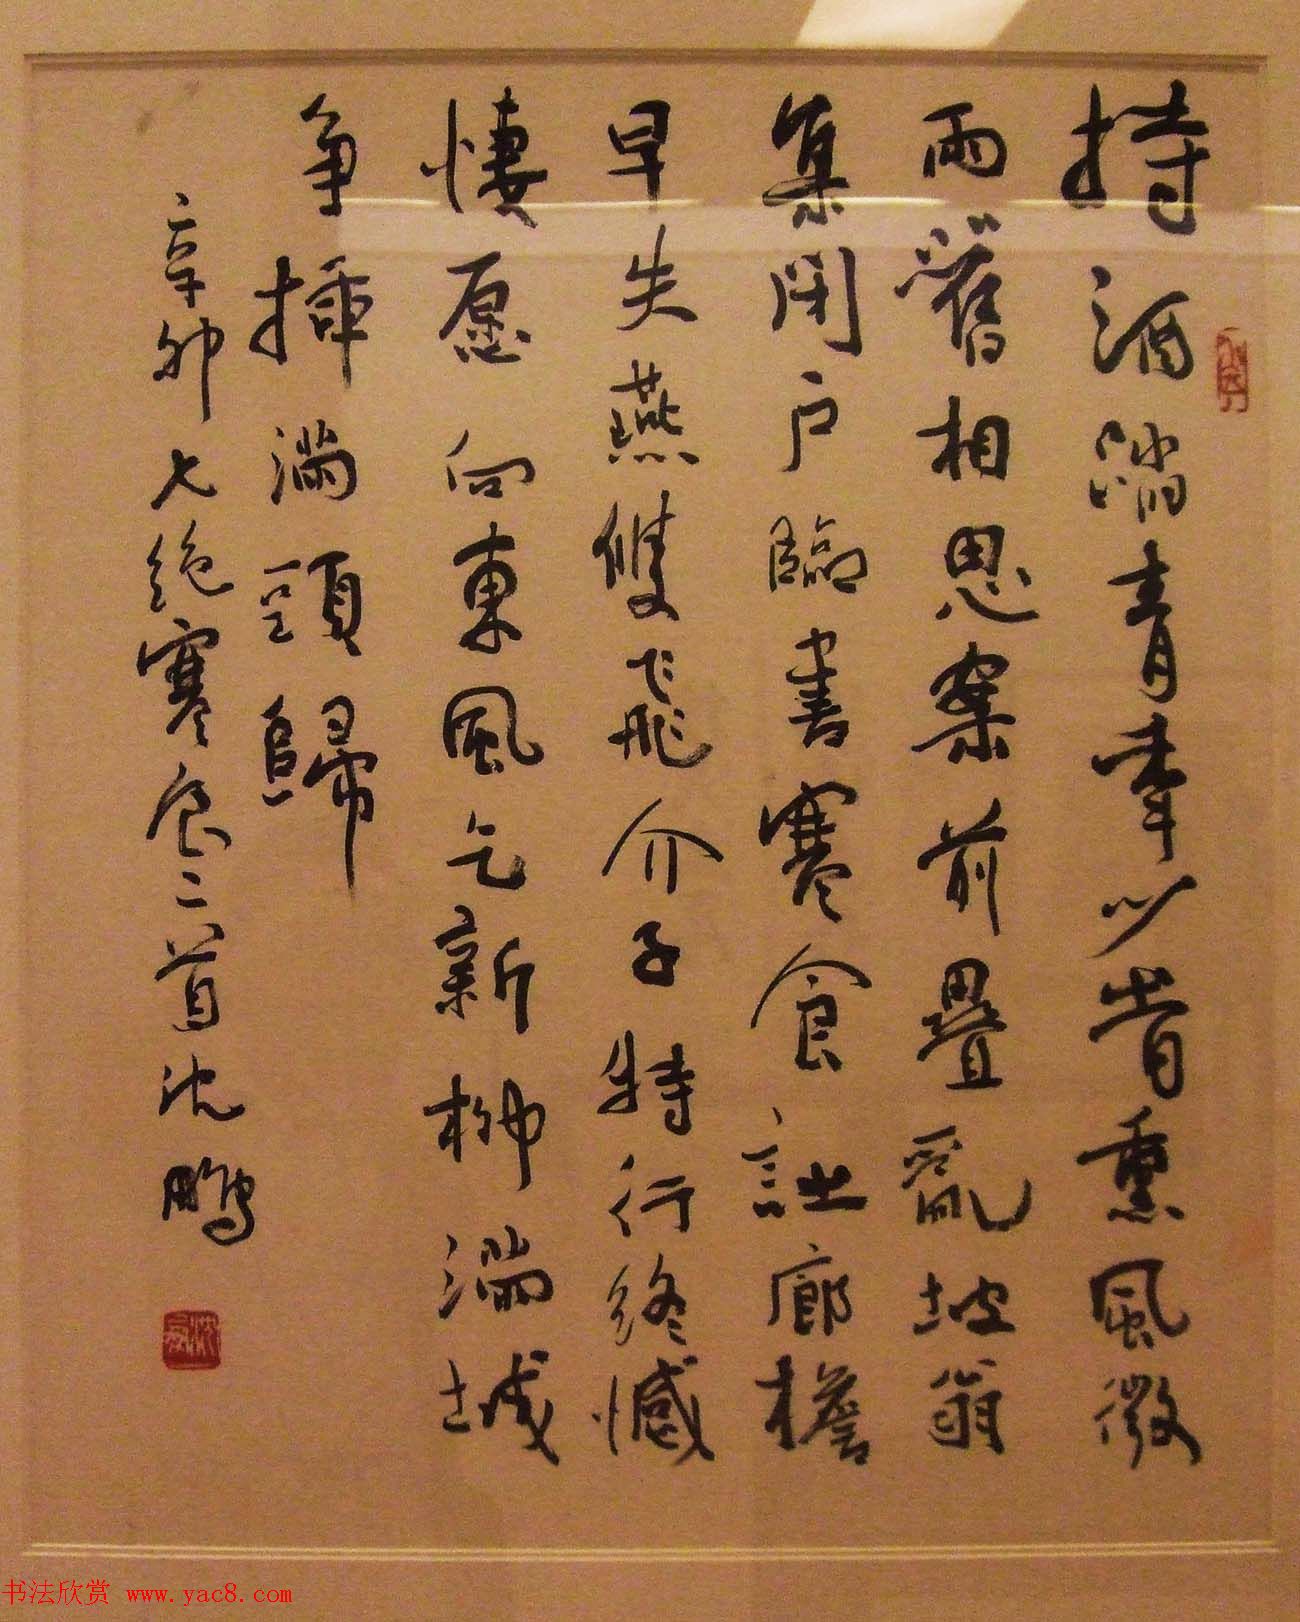 持酒踏青以昔熏風微
雨舊相思案前疊亂坡翁
集閉户臨書寒食詩廊檐
早失燕雙飛介子特行終憾
悽愿向東風乞新柳滿城
争插滿頭歸
辛卯七絶寒食二首沈鵬
书法欣赏 www.yac8.com